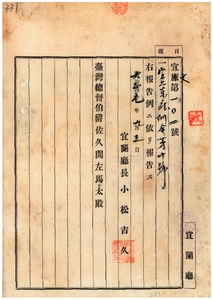 331
日報
宜庶第一〇一號
一宜蘭廳訓令第十號
右報告例ニ依リ報告ス
大正元年
宜蘭廳長 小松吉久
臺灣總督伯爵佐久間左馬太殿
宜蘭廳